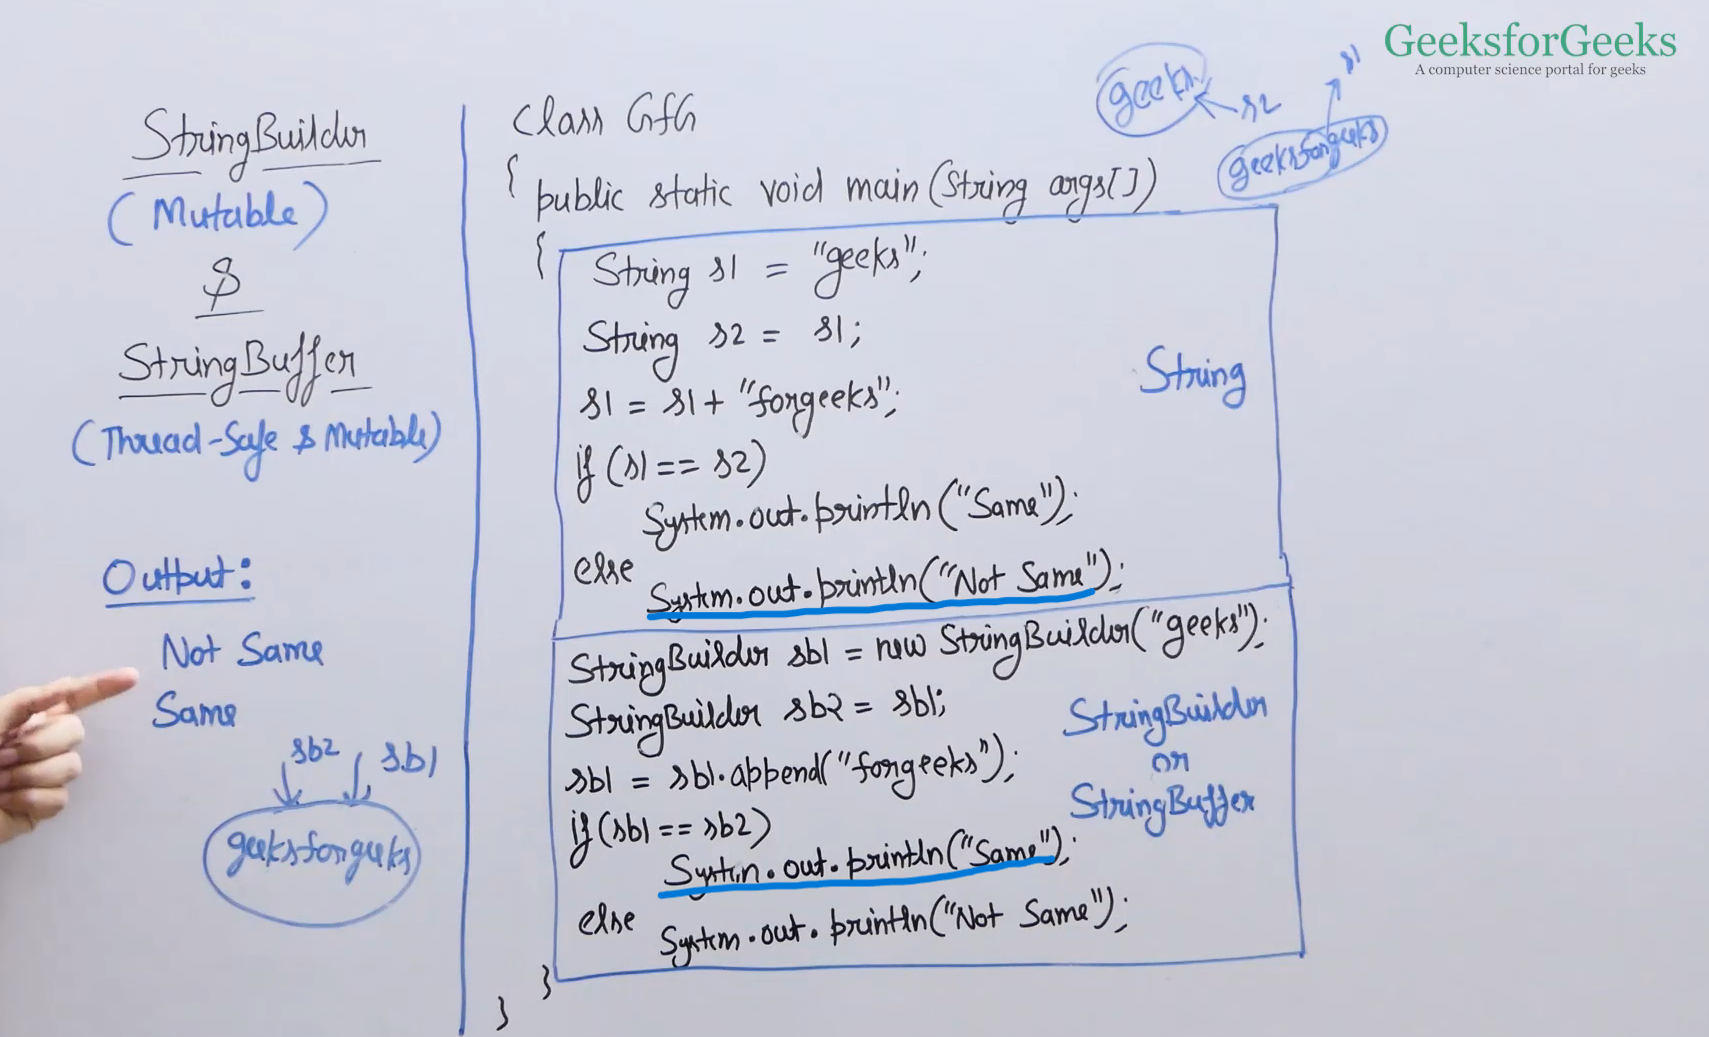 GeeksforGeeks
A computer science portal for geeks
StringBuilder
(Mutable)
&
StringBuffer
(Thread-Safe & Mutable)
Output:
Not Same
Same
sb2
sb1
geeksforgeeks
geeks
s2
s1
geeksforgeeks
class GfG
{ public static void main(String args[])
{
String s1 = "geeks";
String s2 = s1;
s1 = s1 + "forgeeks";
if (s1 == s2)
System.out.println("Same");
else
System.out.println("Not Same");
String
StringBuilder sb1 = new StringBuilder("geeks");
StringBuilder sb2 = sb1;
sb1 = sb1.append("forgeeks");
if(sb1 == sb2)
System.out.println("Same");
else System.out.println("Not Same");
StringBuilder
or
StringBuffer
}
}